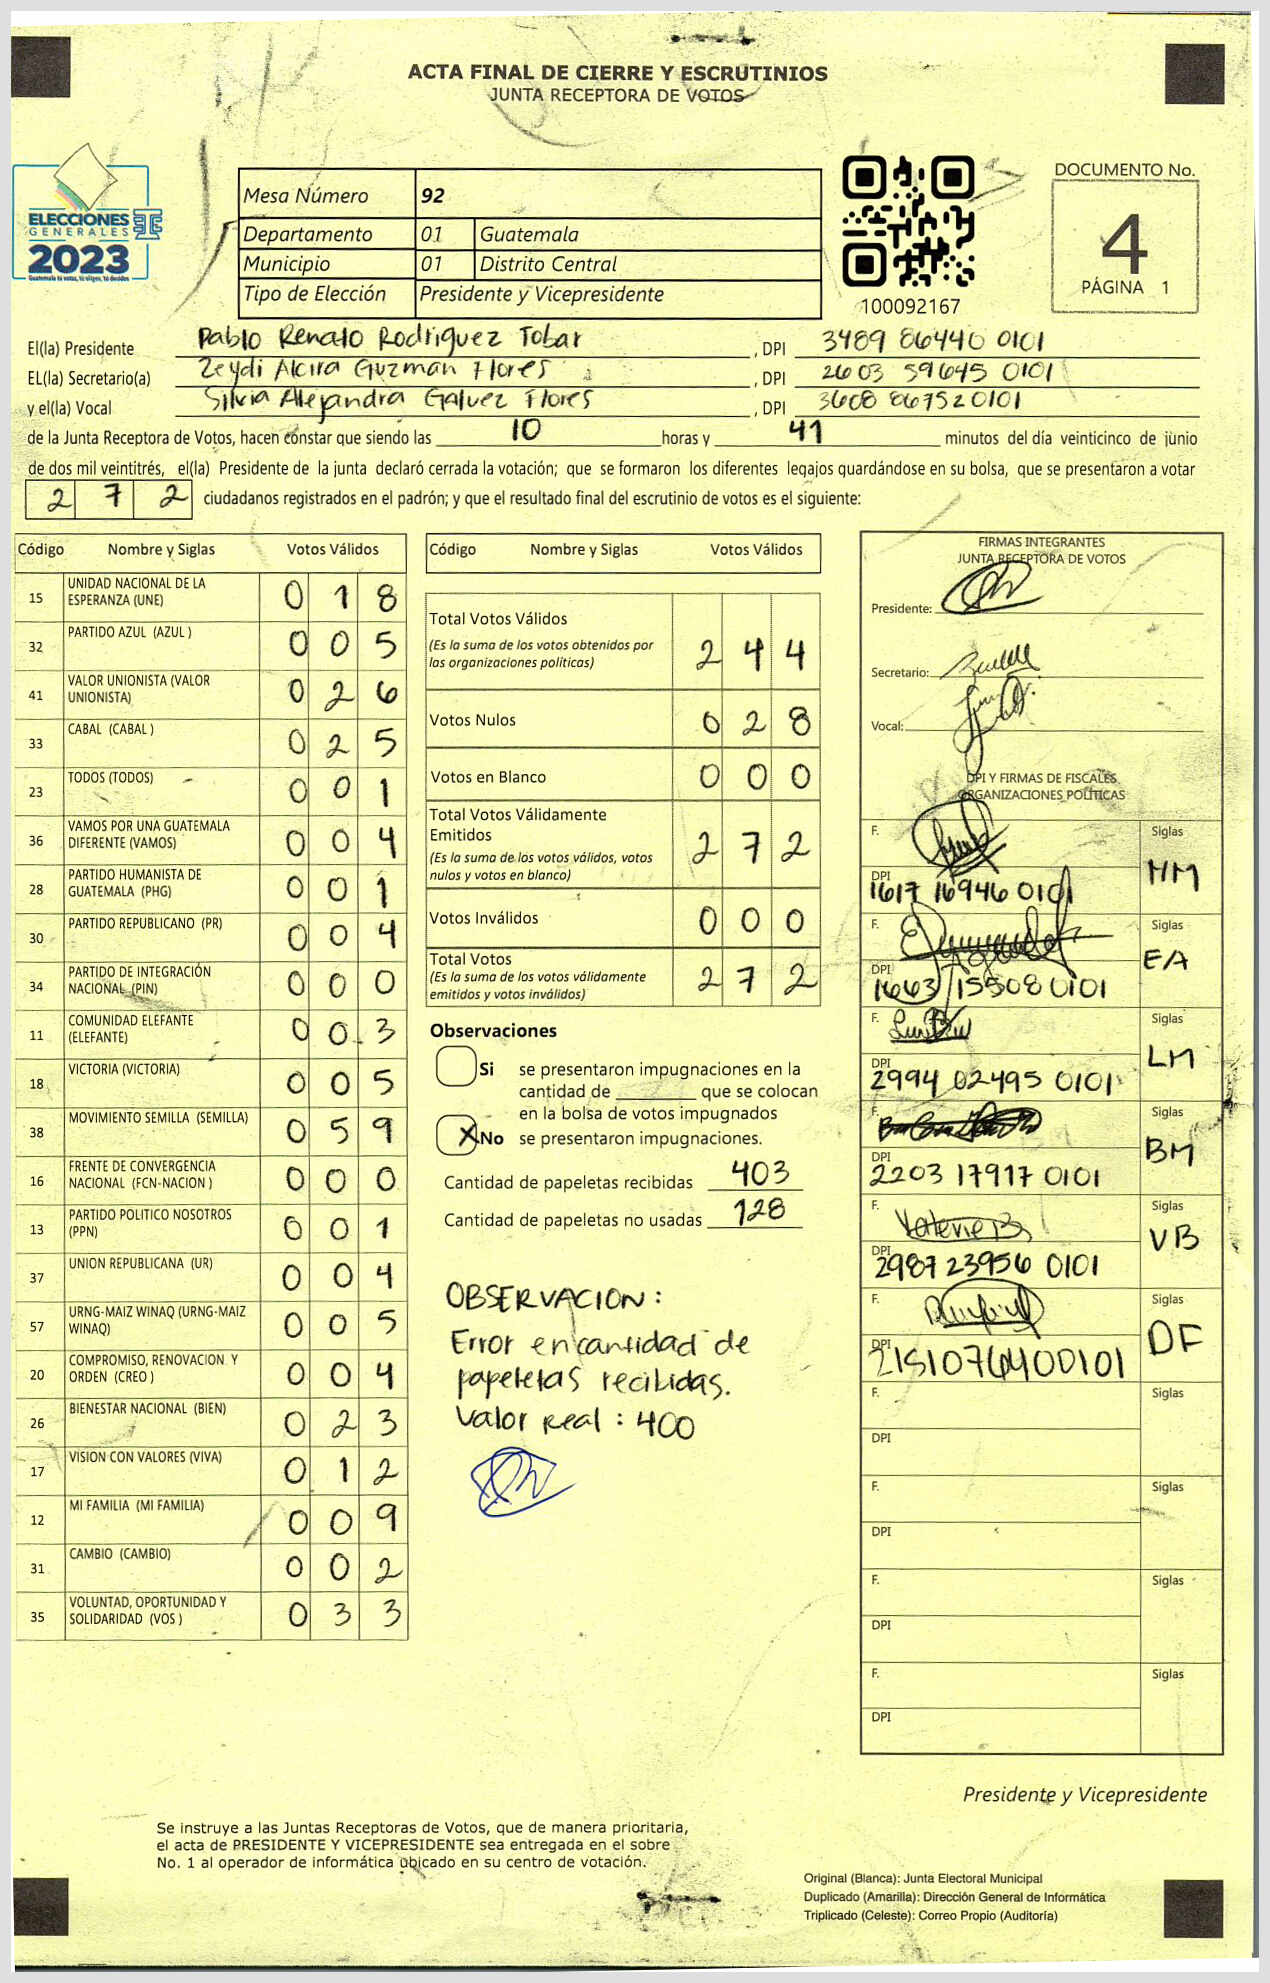 ACTA FINAL DE CIERRE Y ESCRUTINIOS
JUNTA RECEPTORA DE VOTOS
ELECCIONES
GENERALES
2023
Guatemala tú votas, tú eliges, tú decides
Mesa Número 92
Departamento 01 Guatemala
Municipio 01 Distrito Central
Tipo de Elección Presidente y Vicepresidente
100092167
DOCUMENTO No.
4
PÁGINA 1
El(la) Presidente Pablo Renato Rodriguez Tobar , DPI 3489 86440 0101
EL(la) Secretario(a) Zeydi Alcira Guzman Flores , DPI 2603 59645 0101
y el(la) Vocal Silvia Alejandra Galvez Flores , DPI 3608 86752 0101
de la Junta Receptora de Votos, hacen constar que siendo las 10 horas y 41 minutos del día veinticinco de junio
de dos mil veintitrés, el(la) Presidente de la junta declaró cerrada la votación; que se formaron los diferentes legajos guardándose en su bolsa, que se presentaron a votar
272 ciudadanos registrados en el padrón; y que el resultado final del escrutinio de votos es el siguiente:
Código Nombre y Siglas Votos Válidos
15 UNIDAD NACIONAL DE LA ESPERANZA (UNE) 018
32 PARTIDO AZUL (AZUL ) 005
41 VALOR UNIONISTA (VALOR UNIONISTA) 026
33 CABAL (CABAL ) 025
23 TODOS (TODOS) 001
36 VAMOS POR UNA GUATEMALA DIFERENTE (VAMOS) 004
28 PARTIDO HUMANISTA DE GUATEMALA (PHG) 001
30 PARTIDO REPUBLICANO (PR) 004
34 PARTIDO DE INTEGRACIÓN NACIONAL (PIN) 000
11 COMUNIDAD ELEFANTE (ELEFANTE) 003
18 VICTORIA (VICTORIA) 005
38 MOVIMIENTO SEMILLA (SEMILLA) 059
16 FRENTE DE CONVERGENCIA NACIONAL (FCN-NACION ) 000
13 PARTIDO POLITICO NOSOTROS (PPN) 001
37 UNION REPUBLICANA (UR) 004
57 URNG-MAIZ WINAQ (URNG-MAIZ WINAQ) 005
20 COMPROMISO, RENOVACION Y ORDEN (CREO ) 004
26 BIENESTAR NACIONAL (BIEN) 023
17 VISION CON VALORES (VIVA) 012
12 MI FAMILIA (MI FAMILIA) 009
31 CAMBIO (CAMBIO) 002
35 VOLUNTAD, OPORTUNIDAD Y SOLIDARIDAD (VOS ) 033
Código Nombre y Siglas Votos Válidos
Total Votos Válidos 244
(Es la suma de los votos obtenidos por
las organizaciones politicas)
Votos Nulos 028
Votos en Blanco 000
Total Votos Válidamente
Emitidos 272
(Es la suma de los votos válidos, votos
nulos y votos en blanco)
Votos Inválidos 000
Total Votos 272
(Es la suma de los votos válidamente
emitidos y votos inválidos)
Observaciones
Si se presentaron impugnaciones en la
cantidad de ________ que se colocan
en la bolsa de votos impugnados
X No se presentaron impugnaciones.
Cantidad de papeletas recibidas 403
Cantidad de papeletas no usadas 128
OBSERVACION:
Error en cantidad de
papeletas recibidas.
Valor real : 400
FIRMAS INTEGRANTES
JUNTA RECEPTORA DE VOTOS
Presidente:
Secretario:
Vocal:
DPI Y FIRMAS DE FISCALES
ORGANIZACIONES POLÍTICAS
F. Siglas
DPI 1617 16946 0101 MM
F. Siglas
DPI 1663 15508 0101 EA
F. Siglas
DPI 2994 02495 0101 LM
F. Siglas
DPI 2203 17917 0101 BM
F. Valerie B. Siglas
DPI 2987 23956 0101 VB
F. Siglas
DPI 2151076400101 DF
F. Siglas
DPI
F. Siglas
DPI
F. Siglas
DPI
F. Siglas
DPI
Presidente y Vicepresidente
Se instruye a las Juntas Receptoras de Votos, que de manera prioritaria,
el acta de PRESIDENTE Y VICEPRESIDENTE sea entregada en el sobre
No. 1 al operador de informática ubicado en su centro de votación.
Original (Blanca): Junta Electoral Municipal
Duplicado (Amarilla): Dirección General de Informática
Triplicado (Celeste): Correo Propio (Auditoría)